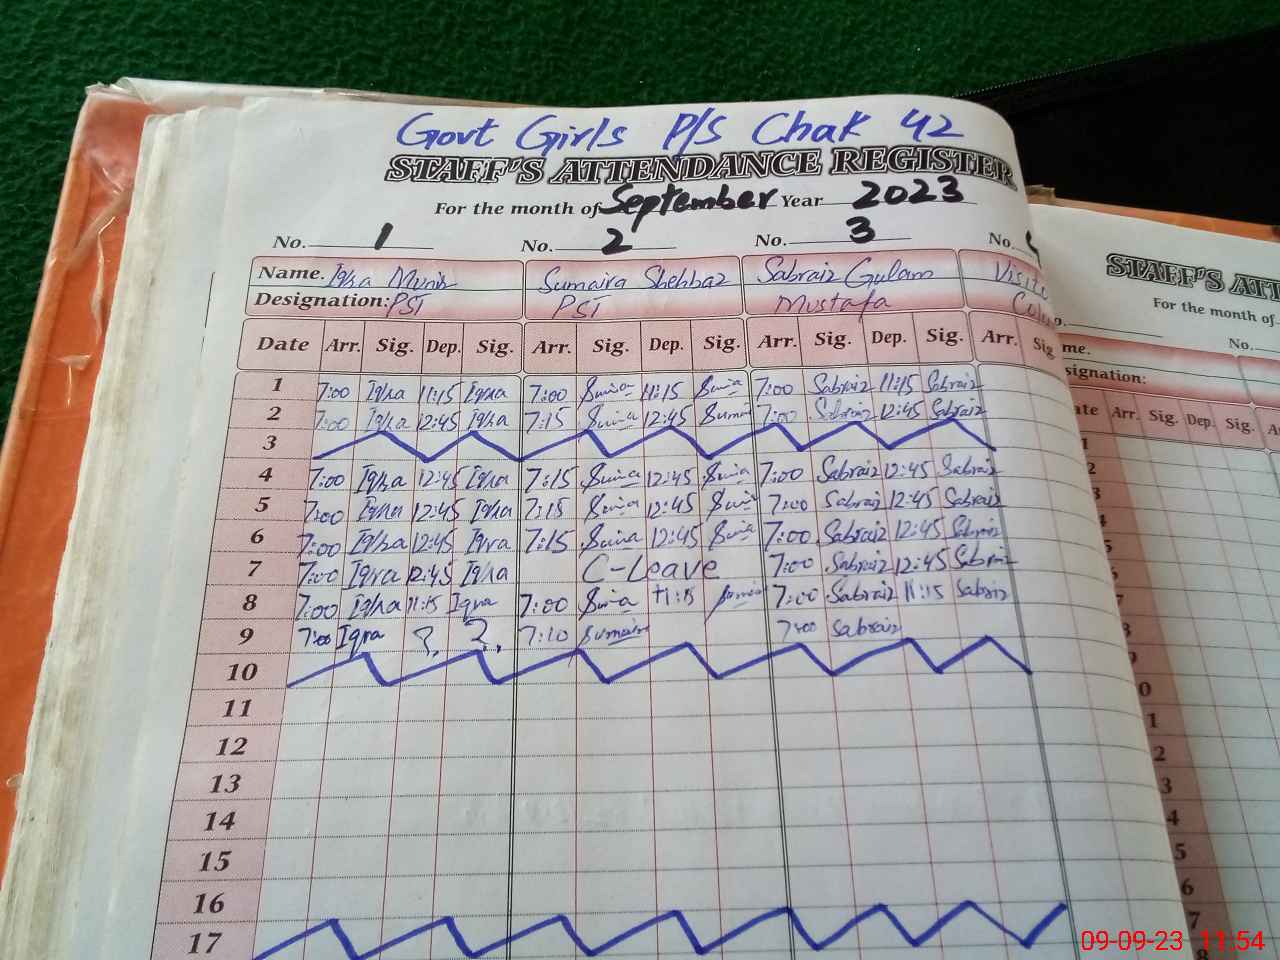 Govt Girls P/S Chak 42
STAFF'S ATTENDANCE REGISTER
For the month of September Year 2023
No. 1 No. 2 No. 3 No. 4
Name. Iqra Munir Sumaira Shehbaz Sabraiz Gulam Visito
Designation: PST PST Mustafa Colu
Date Arr. Sig. Dep. Sig. Arr. Sig. Dep. Sig. Arr. Sig. Dep. Sig. Arr. Sig
1 7:00 Iqra 11:15 Iqra 7:00 11:15 7:00 Sabraiz 11:15 Sabraiz
2 7:00 Iqra 12:45 Iqra 7:15 12:45 7:00 Sabraiz 12:45 Sabraiz
3
4 7:00 Iqra 12:45 Iqra 7:15 12:45 7:00 Sabraiz 12:45 Sabraiz
5 7:00 Iqra 12:45 Iqra 7:15 12:45 7:00 Sabraiz 12:45 Sabraiz
6 7:00 Iqra 12:45 Iqra 7:15 12:45 7:00 Sabraiz 12:45 Sabraiz
7 7:00 Iqra 12:45 Iqra C-Leave 7:00 Sabraiz 12:45 Sabraiz
8 7:00 Iqra 11:15 Iqra 7:00 11:15 7:00 Sabraiz 11:15 Sabraiz
9 7:00 Iqra ? ? 7:10 Sumaira 7:00 Sabraiz
10
11
12
13
14
15
16
17
STAFF'S ATT
For the month of
No.
me.
signation:
ate Arr. Sig. Dep. Sig. A
09-09-23 11:54